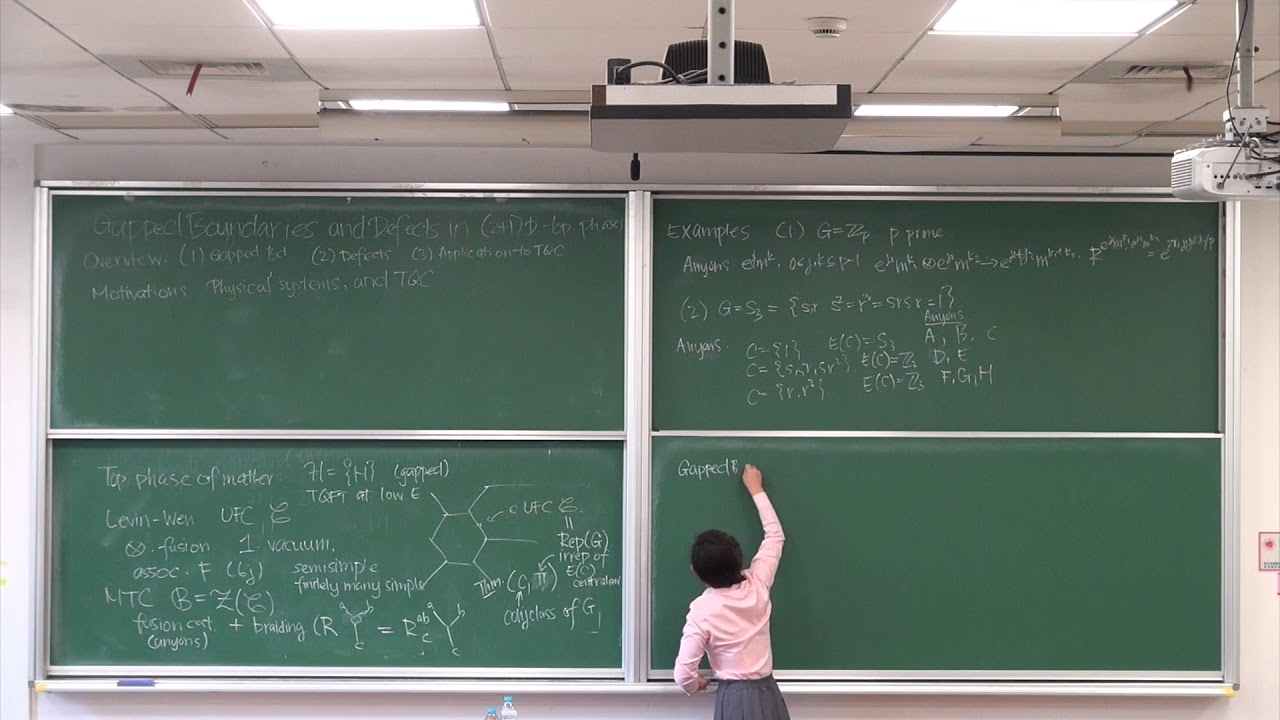 Gapped Boundaries and Defects in (2+1)D-top phases
Overview: (1) Gapped bd (2) Defects (3) Application to TQC
Motivations Physical systems, and TQC
Top phase of matter: H = {H} (gapped)
TQFT at low E
Levin-Wen UFC, C
⊗. fusion 1 vacuum.
assoc. F (6j) semisimple
finitely many simple
MTC B = Z(C)
fusion cat. + braiding (R = R^{ab}_c
(anyons)
a b
c
a b
c
C UFC C
=
Rep(G)
irrep of
E(C)
centralizer
Thm. (C, π)
conj class of G
Examples (1) G = Z_p p prime
Anyons e^j m^k, 0≤j,k≤p-1 e^{j_1} m^{k_1} ⊗ e^{j_2} m^{k_2} → e^{j_1+j_2} m^{k_1+k_2}.
(2) G = S_3 = {s,r s^2=r^3=srsr=1}
Anyons
Anyons. C={1} E(C)=S_3 A, B, C
C={s,sr,sr^2} E(C)=Z_3 D, E
C={r,r^2} E(C)=Z_3 F,G,H
Gapped B